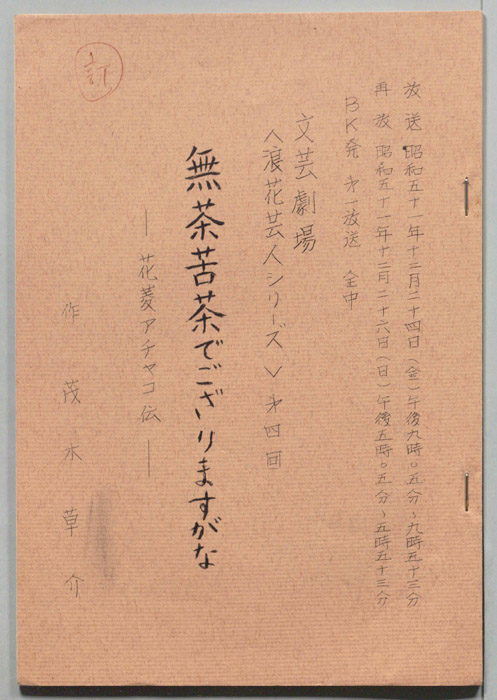 放送 昭和五十一年十二月二十四日(金)午後九時〇五分~九時五十三分
再放 昭和五十一年十二月二十六日(日)午後五時〇五分~五時五十三分
BK発 才一放送 全中
文芸劇場
<浪花芸人シリーズ> 才四回
無茶苦茶でござりますがな
― 花菱アチャコ伝 ―
作 茂木草介